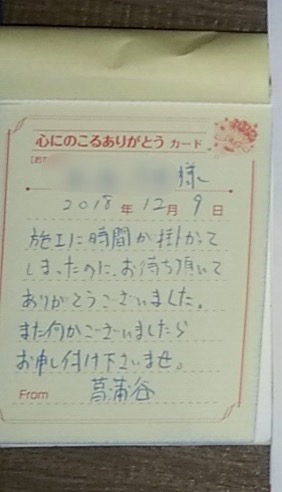 心にのこるありがとう カード
様
2018 年 12 月 9 日
施工に時間が掛かって
しまったのに、お待ち頂いて
ありがとうございました。
また何かございましたら
お申し付け下さいませ。
From 菖蒲谷